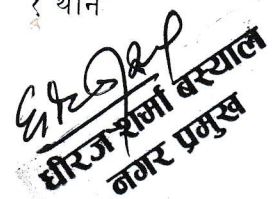 १ थान
धीरज शर्मा बस्याल
नगर प्रमुख